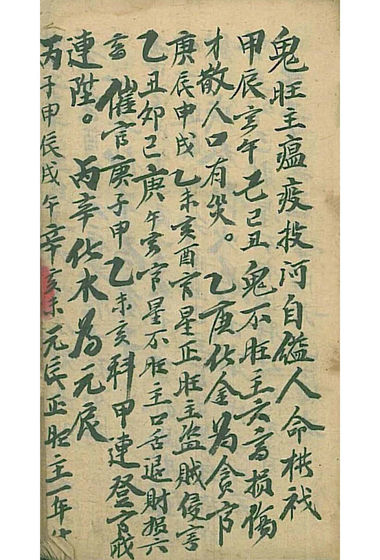 鬼旺主瘟疫投河自縊人命横祸
甲辰亥午己巳丑鬼不旺主六畜損傷
才散人口有災。乙庚化金為贪官
庚辰申戌乙未亥酉官星正旺主盜賊侵害
乙丑卯己庚午亥官星不旺主口舌退財損六
畜催官庚子甲乙未亥科甲連登官成
連陞。丙辛化水為元辰
丙子申辰戌午辛亥未元辰正旺主一年